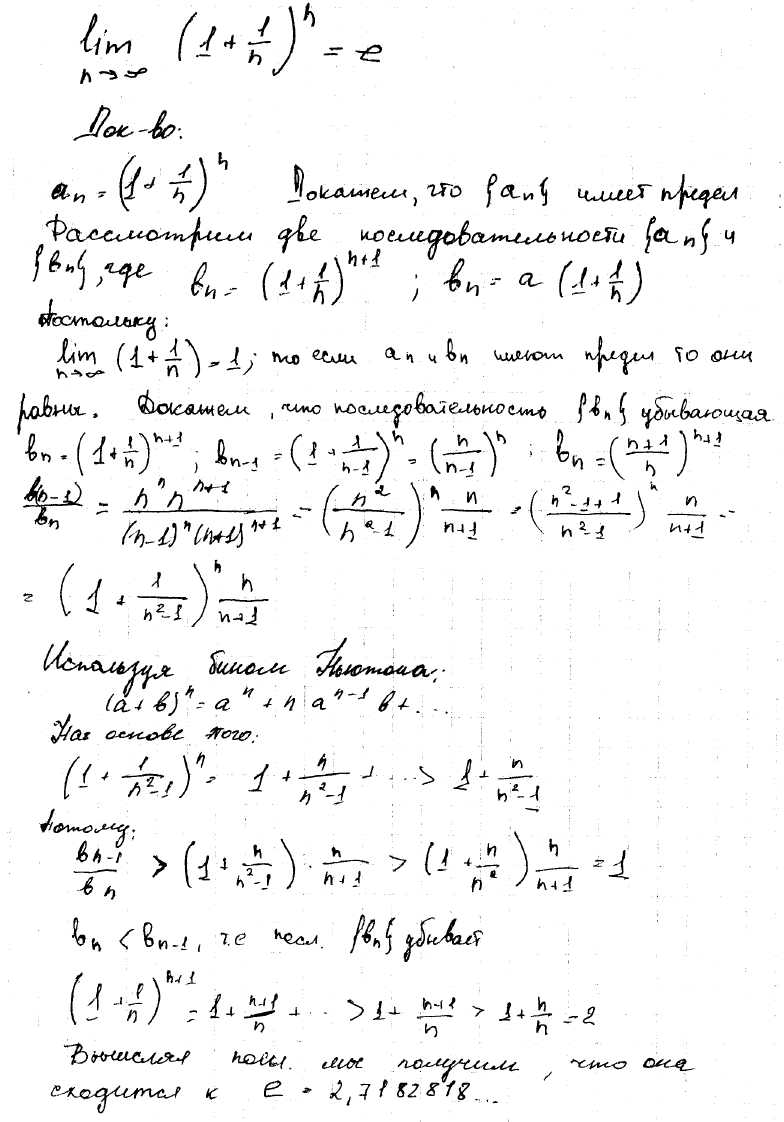 lim (1 + 1/n)^n = e
n→∞
Док-во:
a_n = (1 + 1/n)^n Докажем, что {a_n} имеет предел
Рассмотрим две последовательности {a_n} и
{b_n}, где b_n = (1 + 1/n)^(n+1) ; b_n = a (1 + 1/n)
Постольку:
lim (1 + 1/n) = 1; то если a_n и b_n имеют предел то они
n→∞
равны. Докажем, что последовательность {b_n} убывающая
b_n = (1 + 1/n)^(n+1) ; b_(n-1) = (1 + 1/(n-1))^n = (n/(n-1))^n ; b_n = ((n+1)/n)^(n+1)
b(n-1)/b_n = n^n n^(n+1) / ((n-1)^n (n+1)^(n+1)) = (n²/(n²-1))^n n/(n+1) = ((n²-1+1)/(n²-1))^n n/(n+1) =
= (1 + 1/(n²-1))^n n/(n+1)
Используя бином Ньютона:
(a+b)^n = a^n + n a^(n-1) b + ...
На основе этого:
(1 + 1/(n²-1))^n = 1 + n/(n²-1) + ... > 1 + n/(n²-1)
Потому:
b_(n-1)/b_n > (1 + n/(n²-1)) · n/(n+1) > (1 + n/n²) n/(n+1) = 1
b_n < b_(n-1), т.е посл. {b_n} убывает
(1 + 1/n)^(n+1) = 1 + (n+1)/n + ... > 1 + (n+1)/n > 1 + n/n = 2
Вычисляя посл. мы получим, что она
сходится к e = 2,7182818...